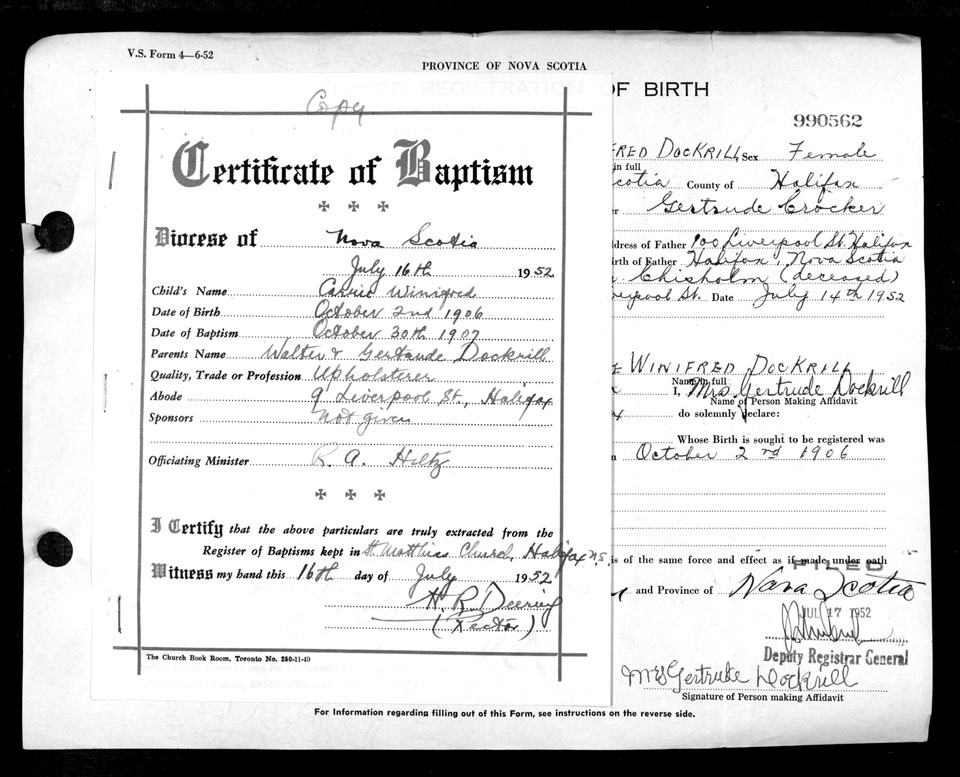 V.S. Form 4—6-52
PROVINCE OF NOVA SCOTIA
OF BIRTH
990562
Copy
Certificate of Baptism
Diocese of Nova Scotia
July 16th 1952
Child's Name Carrie Winifred
Date of Birth October 2nd 1906
Date of Baptism October 30th 1907
Parents Name Walter & Gertrude Dockrill
Quality, Trade or Profession Upholsterer
Abode 9 Liverpool St., Halifax
Sponsors Not given
Officiating Minister R. A. Hiltz
I Certify that the above particulars are truly extracted from the
Register of Baptisms kept in St. Matthias Church, Halifax N.S.
Witness my hand this 16th day of July 1952
H. R. Deering
(Rector)
The Church Book Room, Toronto No. 250-11-49
FRED DOCKRILL Sex Female
in full
cotia County of Halifax
Gertrude Crocker
ddress of Father 100 Liverpool St. Halifax
irth of Father Halifax, Nova Scotia
Chisholm (deceased)
verpool St. Date July 14th 1952
WINIFRED DOCKRILL
Name in full
I, Mrs Gertrude Dockrill
Name of Person Making Affidavit
do solemnly declare:
Whose Birth is sought to be registered was
October 2nd 1906
is of the same force and effect as if made under oath
FILED
and Province of Nova Scotia
JUL 17 1952
Deputy Registrar General
Mrs Gertrude Dockrill
Signature of Person making Affidavit
For Information regarding filling out of this Form, see instructions on the reverse side.